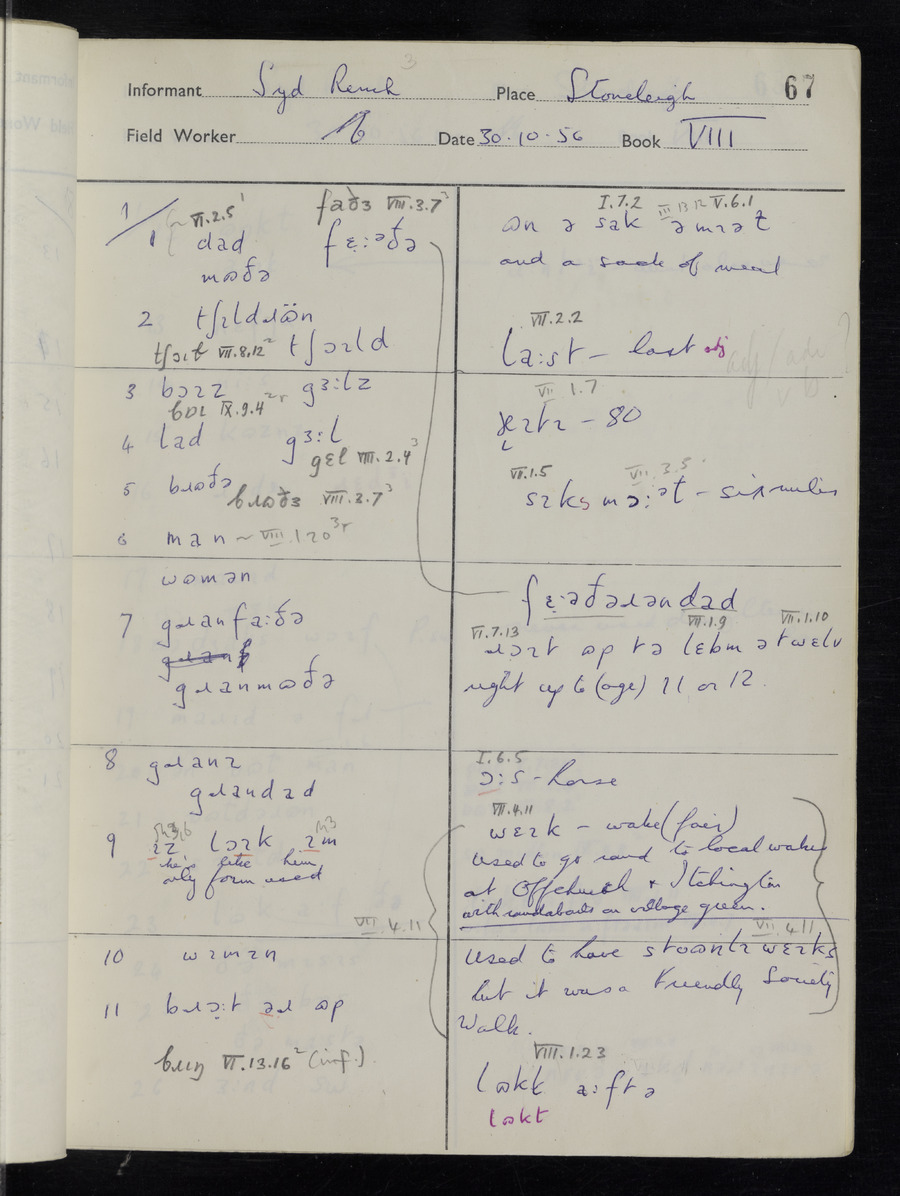 Informant Syd Place Stoneleigh 67
Field Worker Date 30.10.56 Book VIII
1
VI.2.5¹ faðɜ VIII.3.7³
1 dad fɛ:əðə
mɷðə
2 tʃɪldɹɷ̈n
VII.8.12² tʃɔɪld
3 bɔɪz gɜ:lz
bɒɪ IX.9.4
4 lad gɜ:l
gɛl VIII.2.4³
5 bɹɷðə
bɹɷðɜ VIII.3.7³
6 man ~ VIII.1.20
wɷmən
7 gɹanfa:ðə
gɹanmɷðə
8 gɹanɪ
gɹandad
9 ɪz lɔɪk ɪm
he's like him
only form used
VII.4.11
10 wɪmɪn
11 bɹɔ:t əɹ ɷp
VI.13.16² (inf.)
I.7.2 III 13 12 V.6.1
ɷn ə sak ə mɪət
and a sack of meal
VII.2.2
la:st – last adj
adj/adv ?
VII 1.7
ɛɪtɪ – 80
VII.1.5 VII 3.5
sɪks mɔ:ət – six miles
fɛ:əðəɹən dad
VI.7.13 VII.1.9 VII.1.10
ɹɔɪt ɷp tə lɛbm ə twɛlv
right up to (age) 11 or 12.
I.6.5
ɔ:s – horse
VII.4.11
wɛɪk – wake (fair)
used to go round to local wakes
at Offchurch & Itchington
with roundabouts on village green.
VII.4.11
Used to have wɛɪks
but it was a Friendly Society
Walk.
VIII.1.23
lɷkt a:ftə
lɷkt